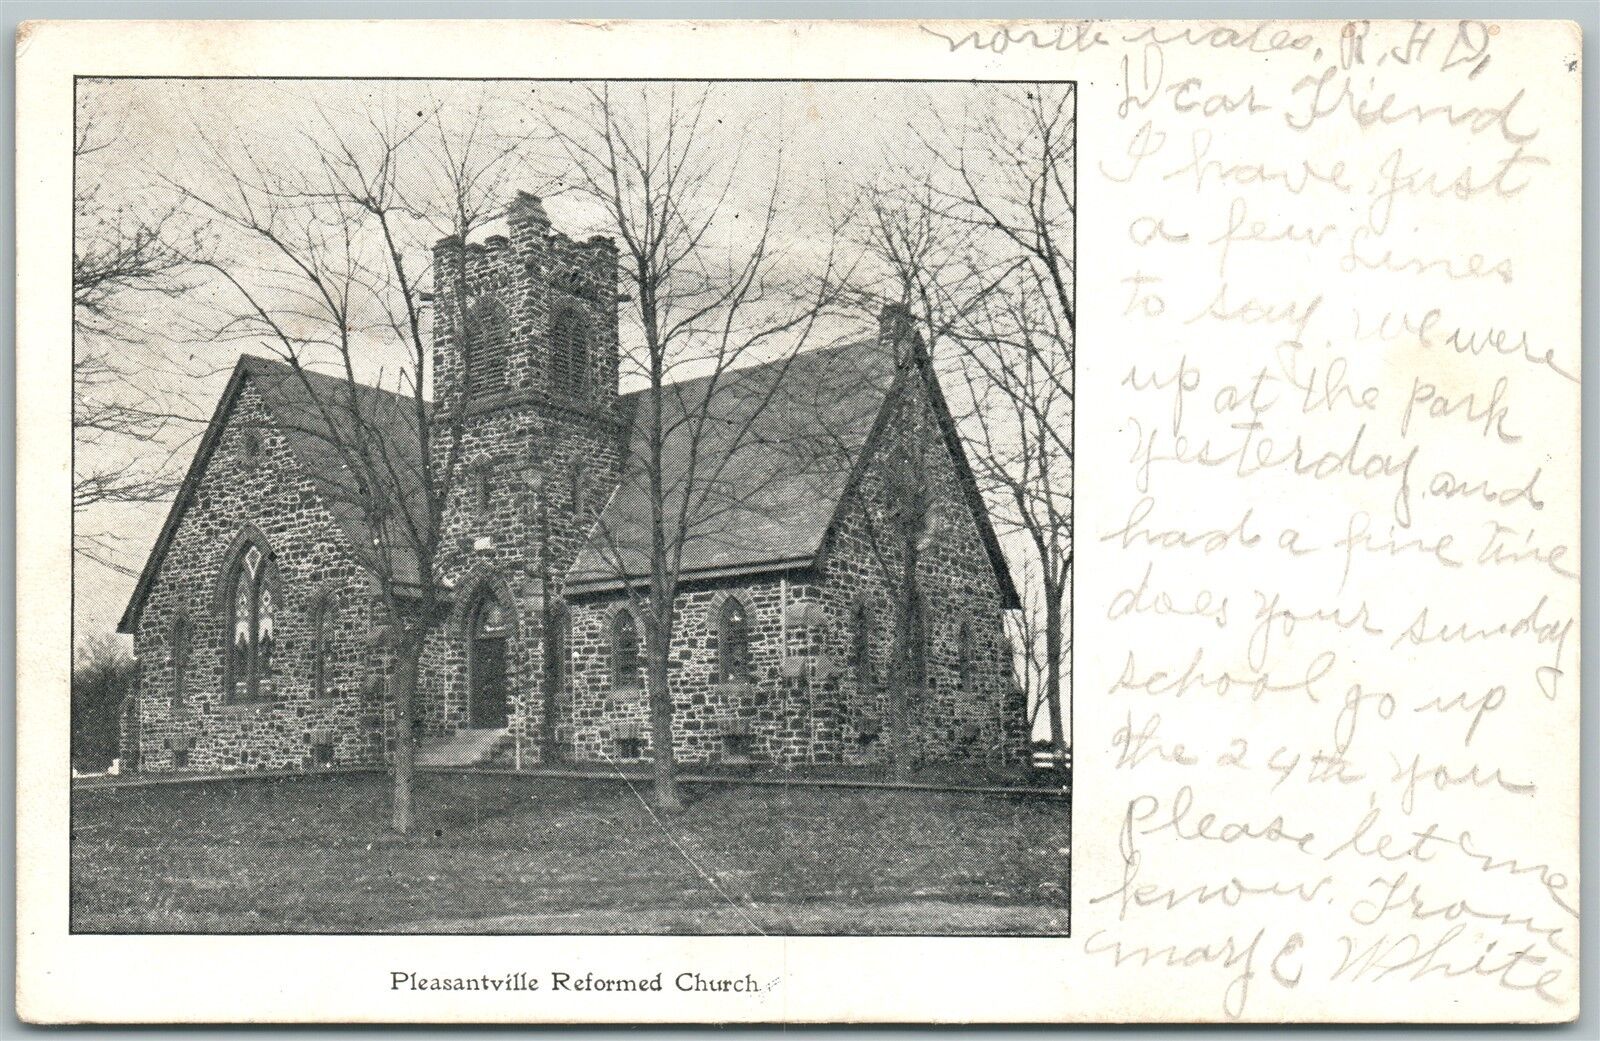 North Wales, R. F D,
Dear Friend
I have Just
a few Lines
to say. We were
up at The park
Yesterday. and
had a fine Time
does Your sunday
school go up
The 24th, You
please let me
know. From
Mary C White
Pleasantville Reformed Church